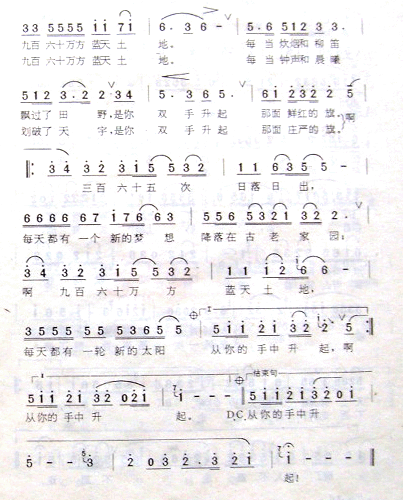 33 5555 i i 7i | 6. 3 6 - | 5.6 512 3 3
九百 六十万方 蓝天 土 地。 每 当 炊烟和 柳 笛
九百 六十万方 蓝天 土 地。 每 当 钟声和 晨 曦
512 3. 2 2 34 | 5. 3 6 5. | 6i 2 32 2 5
飘过了 田 野,是你 双 手 升 起 那面 鲜红的 旗, 啊
划破了 天 宇,是你 双 手 升 起 那面 庄严的 旗,
34 32 3i5 532 | 11 635 5 -
三百 六十五 次 日落 日 出,
6666 67 i76 63 | 5556 5321 32 2.
每天都有 一个 新的梦 想 降落在古 老 家 园;
34 32 3i5 532 | 11 i2i6 6 -
啊 九百 六十万 方 蓝天 土 地,
3555 55 55 365 5 | 5ii 2i 32 2 5
每天都有 一轮 新的太阳 从你的 手中 升 起,啊
5ii 2i 32 02i | i - - - | 5ii2i320i
从你的 手中 升 起。 D.C.从你的手中升
结束句
5 - - 3 | 2 03 2.3 2i | i - - -
起!